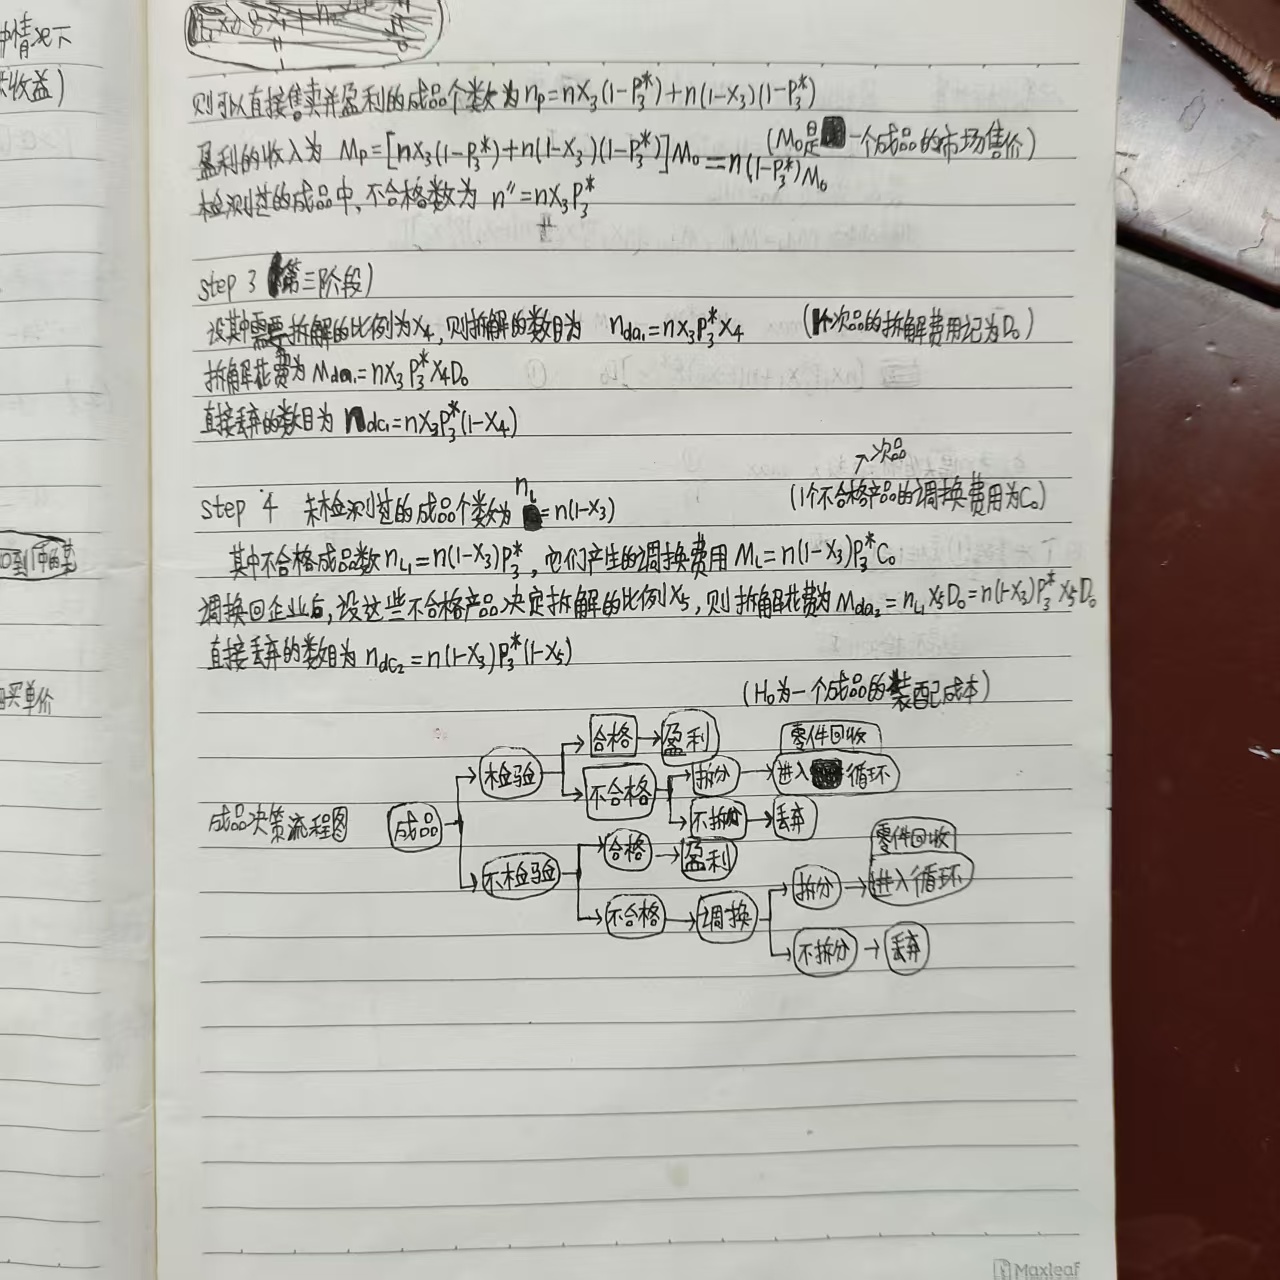 中情况下
收益)
回到1中的某
买单价
则可以直接售卖并盈利的成品个数为 nₚ=nX₃(1-P₃*)+n(1-X₃)(1-P₃*)
盈利的收入为 Mₚ=[nX₃(1-P₃*)+n(1-X₃)(1-P₃*)]M₀=n(1-P₃*)M₀
(M₀是一个成品的市场售价)
检测过的成品中,不合格数为 n″=nX₃P₃*
step 3 (第三阶段)
设其中需要拆解的比例为X₄,则拆解的数目为 n_da₁=nX₃P₃*X₄ (1个次品的拆解费用记为D₀)
拆解花费为 M_da₁=nX₃P₃*X₄D₀
直接丢弃的数目为 n_dc₁=nX₃P₃*(1-X₄)
↗次品
step 4 未检测过的成品个数为 n_L=n(1-X₃) (1个不合格产品的调换费用为C₀)
其中不合格成品数 n_L₁=n(1-X₃)P₃*,它们产生的调换费用 M_L=n(1-X₃)P₃*C₀
调换回企业后,设这些不合格产品决定拆解的比例X₅,则拆解花费为 M_da₂=n_L₁X₅D₀=n(1-X₃)P₃*X₅D₀
直接丢弃的数目为 n_dc₂=n(1-X₃)P₃*(1-X₅)
(H₀为一个成品的装配成本)
成品决策流程图
成品
检验
合格→盈利
不合格
拆分→进入循环
零件回收
不拆分→丢弃
不检验
合格→盈利
不合格→调换
拆分→进入循环
零件回收
不拆分→丢弃
Maxleaf